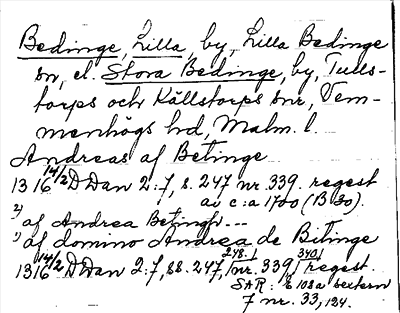 Bedinge, Lilla, by, Lilla Bedinge
sn, el. Stora Bedinge, by, Tulls-
torps och Källstorps snr, Vem-
menhögs hd, Malm. l.
Andreas af Betinge
1316 14/2 DDan 2:7, s. 247 nr. 339. regest
av c:a 1700 (B 30).
2) af Andrea Betingh---
1) af domino Andrea de Bitinge
1316 14/2 DDan 2:7, ss. 247, 248.1 nr. 339, 340.1 regest.
SAR: 108a
7 nr. 33, 124.